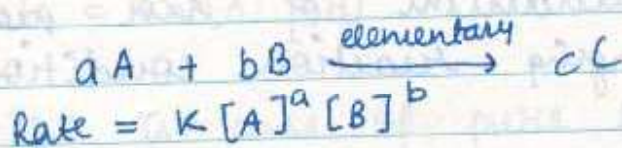 aA + bB elementary → cC
Rate = K [A]^a [B]^b